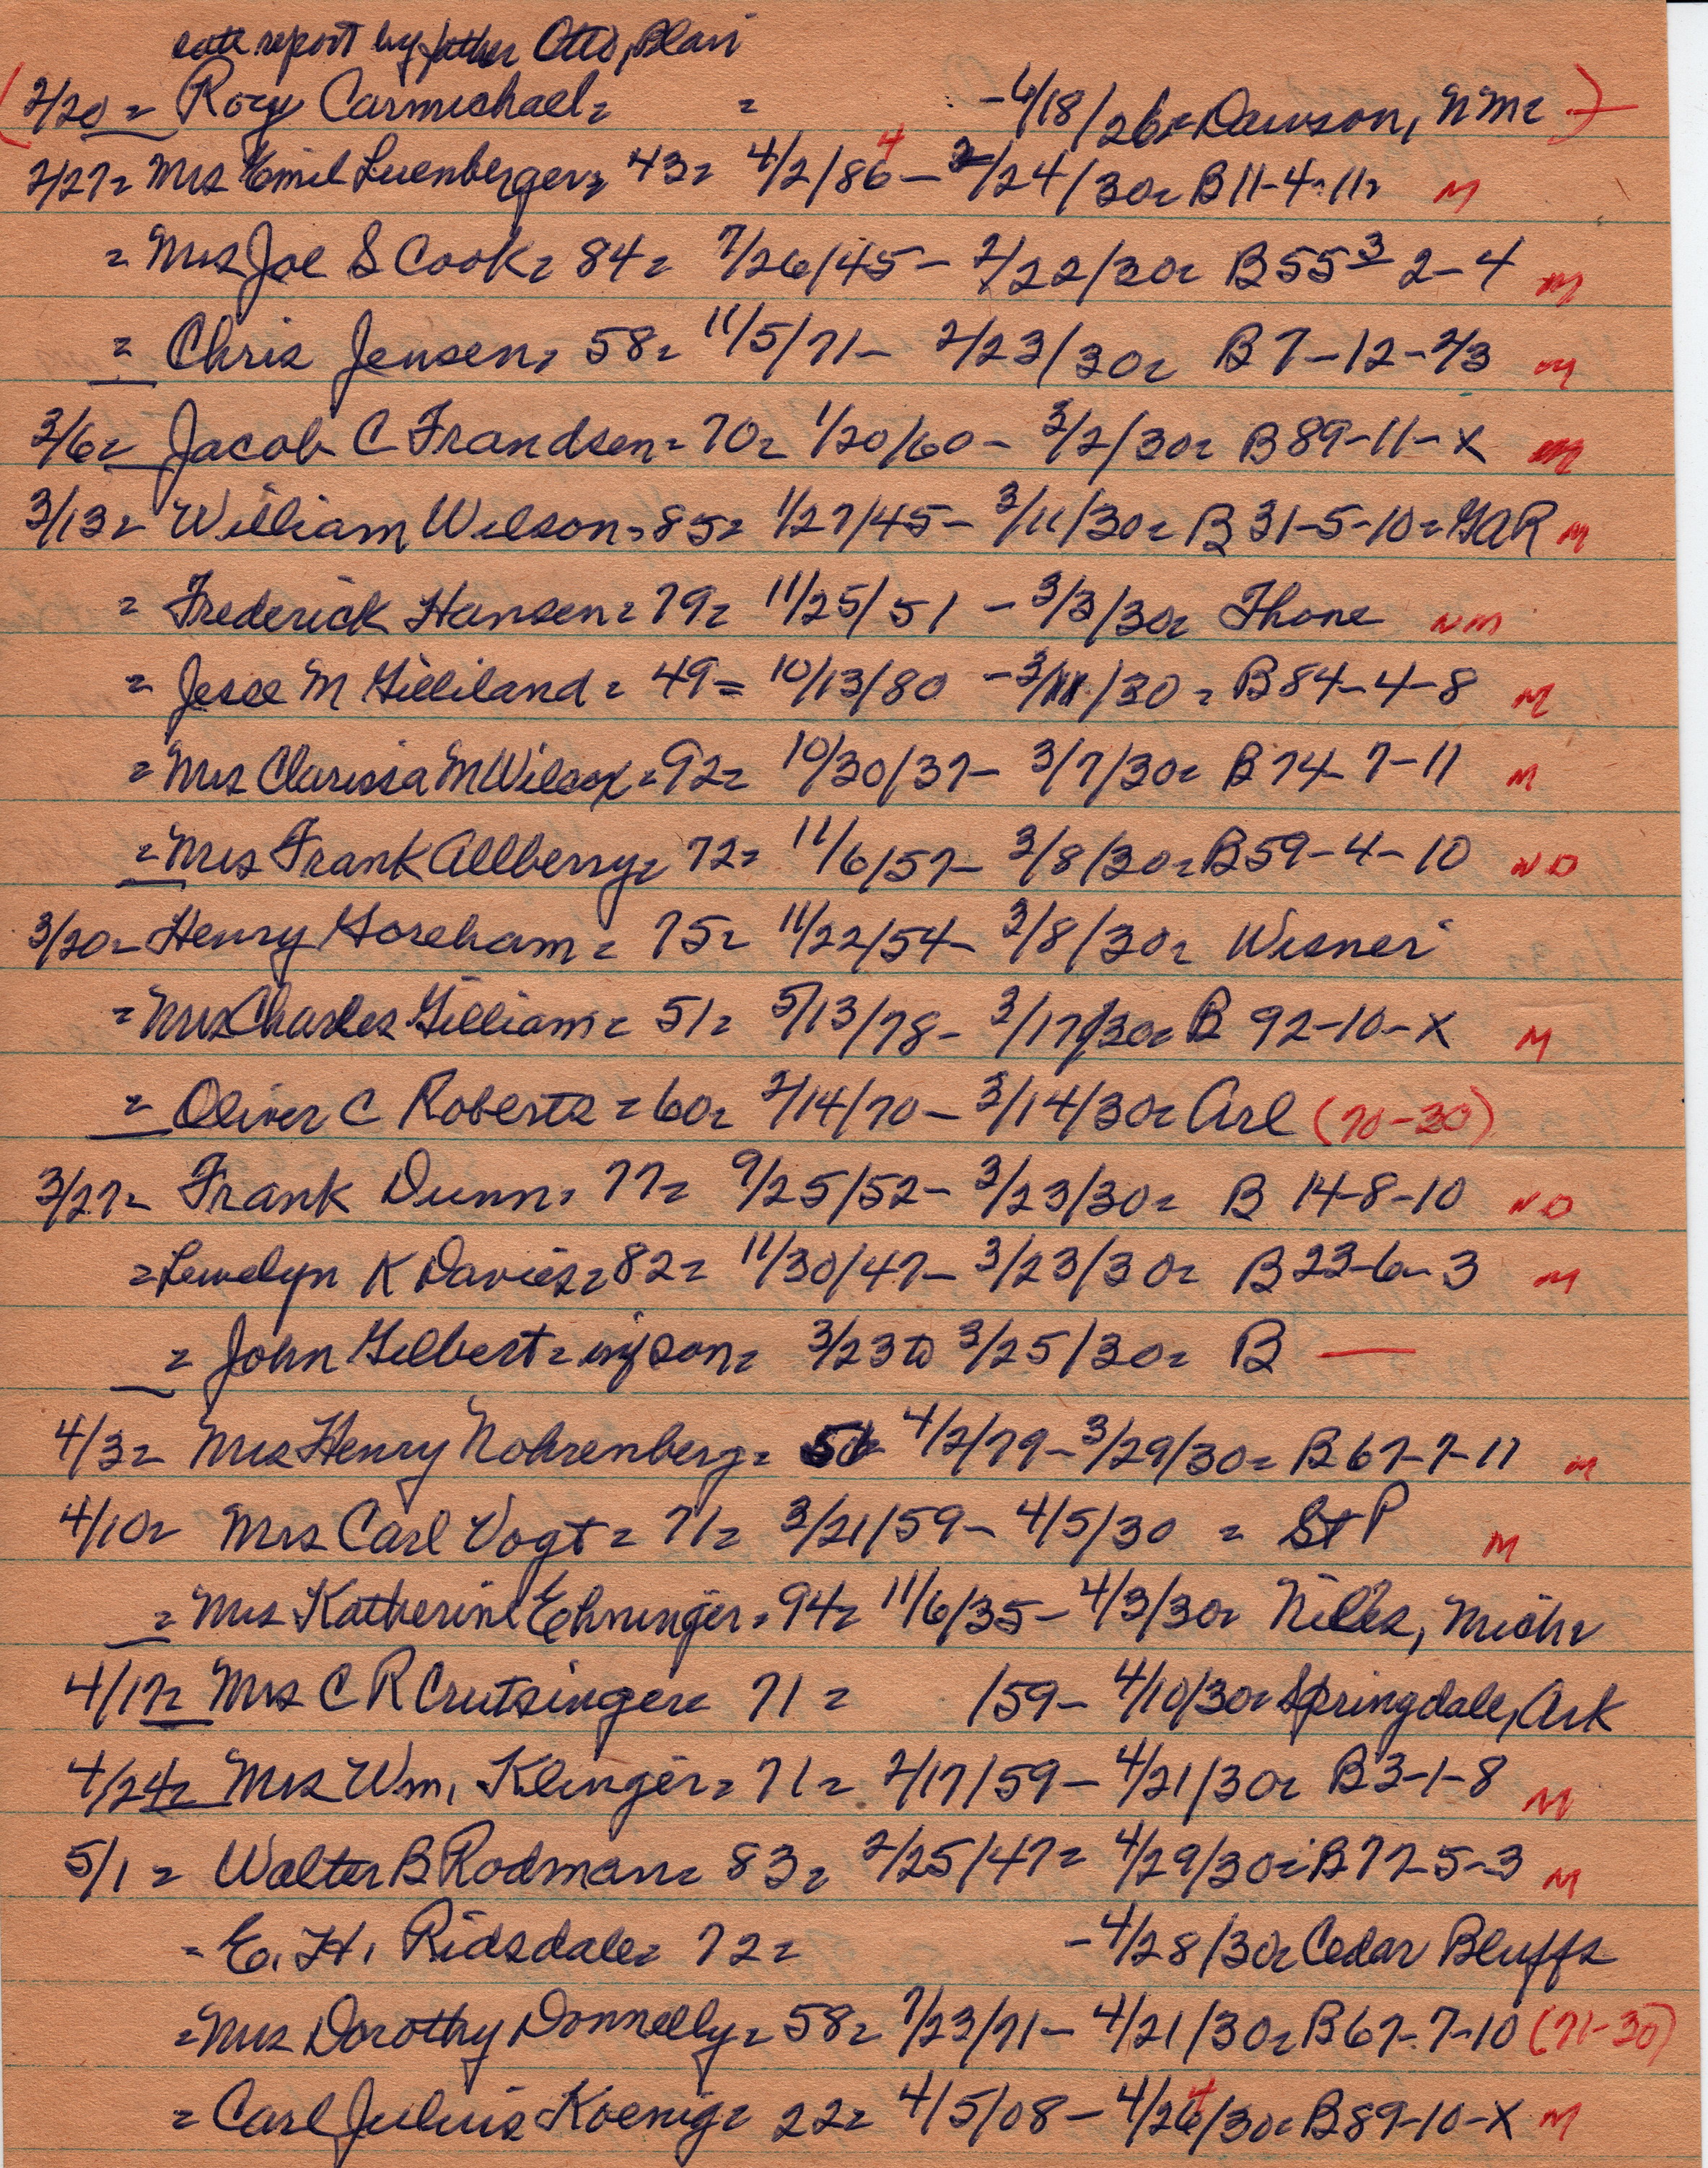 late report by father Otto, Blair
(2/20= Roy Carmichael= = - 6/18/26= Dawson, NM= )
2/27= Mrs Emil Luenberger= 43= 4/2/86 4 - 2/24/30= B11-4-11= M
= Mrs Joe S Cook= 84= 7/26/45- 2/22/30= B55 3 2-4 M
= Chris Jensen= 58= 11/5/71- 2/23/30= B7-12-2/3 M
3/6= Jacob C Frandsen= 70= 1/20/60- 3/2/30= B89-11-X M
3/13= William Wilson= 85= 1/27/45- 3/11/30= B31-5-10= GAR M
= Frederick Hansen= 79= 11/25/51 - 3/3/30= Thone NM
= Jesse M Gilliland= 49= 10/13/80 - 3/ /30= B84-4-8 M
= Mrs Clarissa M Wilcox= 92= 10/30/37- 3/7/30= B74-7-11 M
= Mrs Frank Allberry= 72= 11/6/57- 3/8/30= B59-4-10 NO
3/20= Henry Goreham= 75= 11/22/54- 3/8/30= Wisner
= Mrs Charles Gilliam= 51= 5/13/78- 3/17/30= B 92-10-X M
= Oliver C Roberts= 60= 2/14/70- 3/14/30= Arl (70-30)
3/27= Frank Dunn= 77= 9/25/52- 3/23/30= B 14-8-10 NO
= Lewelyn K Davies= 82= 11/30/47- 3/23/30= B23-6-3 M
= John Gilbert= inf son= 3/23 to 3/25/30= B —
4/3= Mrs Henry Nohrenberg= 4/2/79- 3/29/30= B67-7-11 M
4/10= Mrs Carl Vogt= 71= 3/21/59- 4/5/30 = St P M
= Mrs Katherine Ehninger= 94= 11/6/35- 4/3/30= Niles, Mich=
4/17= Mrs C R Crutsinger= 71= /59- 4/10/30= Springdale, Ark
4/24= Mrs Wm. Klinger= 71= 2/17/59- 4/21/30= B3-1-8 M
5/1= Walter B Rodman= 83= 2/25/47= 4/29/30= B77-5-3 M
= E. H. Ridsdale= 72= - 4/28/30= Cedar Bluffs
= Mrs Dorothy Donnelly= 58= 7/23/71- 4/21/30= B67-7-10 (71-30)
= Carl Julius Koenig= 22= 4/5/08- 4/26 4/30= B89-10-X M